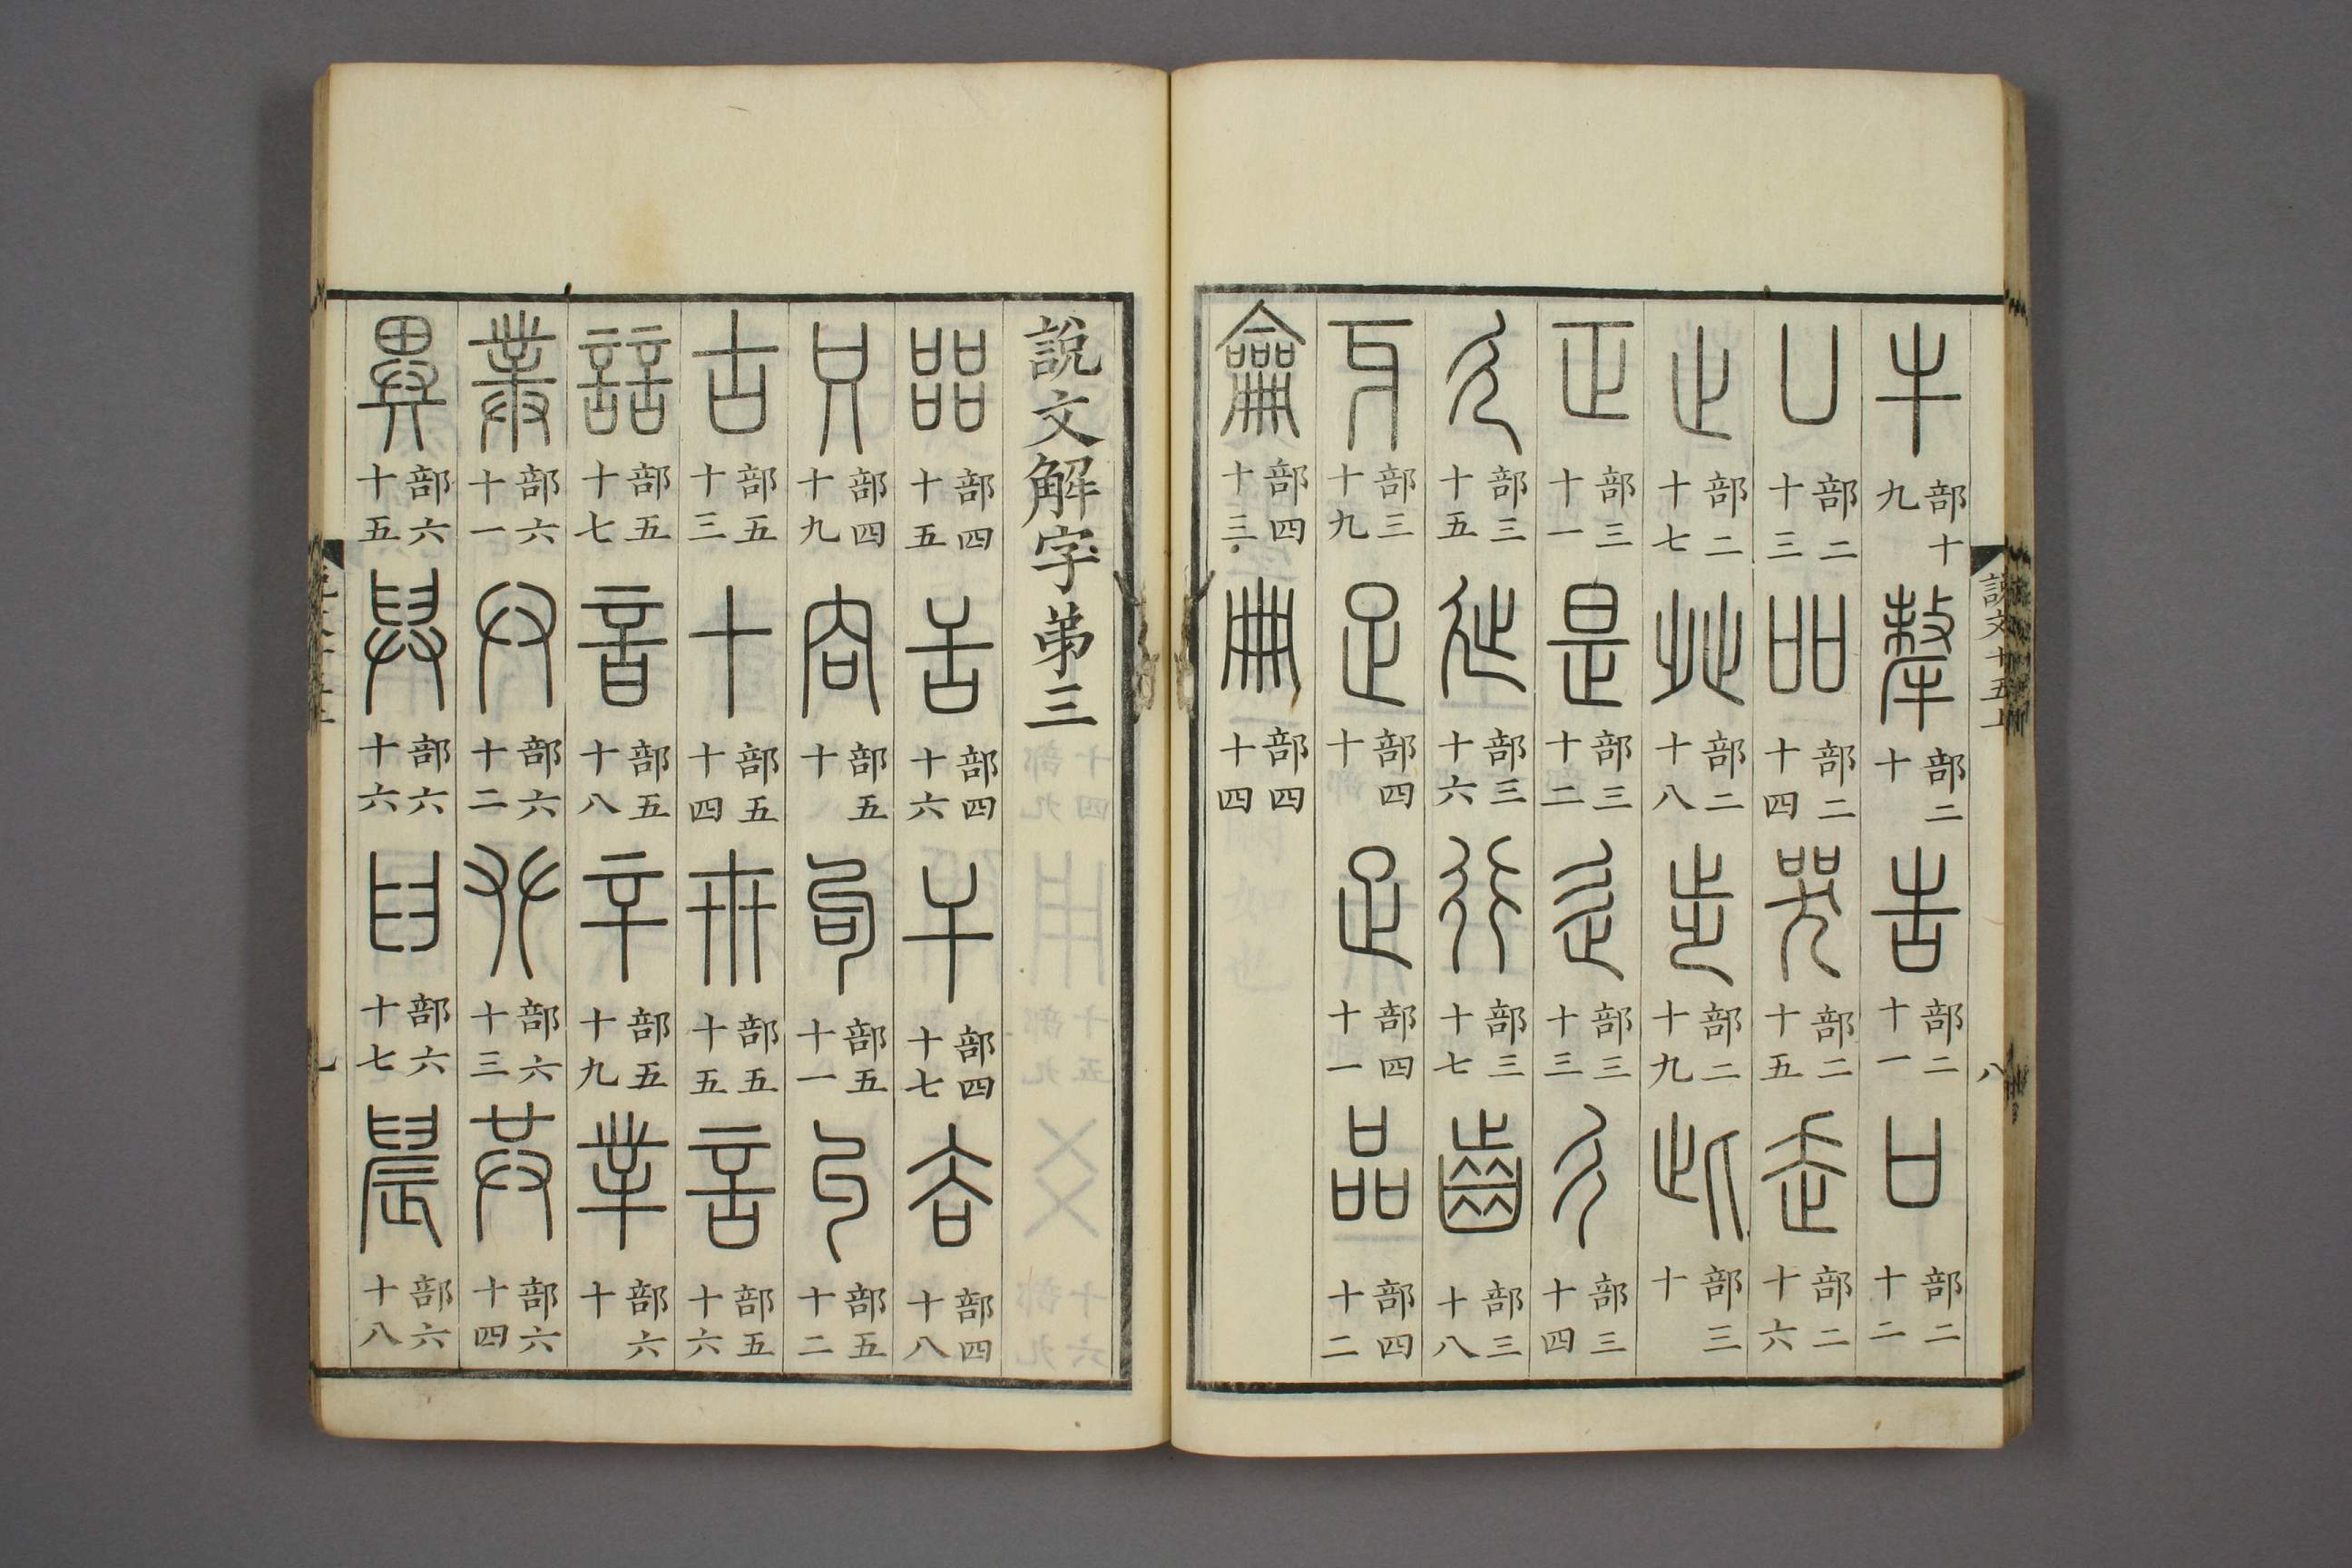 說文十五上
八
牛部十九犛部二十告部二十一口部二十二
凵部二十三吅部二十四哭部二十五走部二十六
止部二十七癶部二十八步部二十九此部三十
正部三十一是部三十二辵部三十三彳部三十四
廴部三十五㢟部三十六行部三十七齒部三十八
牙部三十九足部四十疋部四十一品部四十二
龠部四十三冊部四十四
說文解字弟三
㗊部四十五舌部四十六干部四十七𧮫部四十八
只部四十九㕯部五十句部五十一丩部五十二
古部五十三十部五十四卅部五十五言部五十六
誩部五十七音部五十八䇂部五十九丵部六十
菐部六十一廾部六十二𠬜部六十三共部六十四
異部六十五舁部六十六𦥑部六十七䢅部六十八